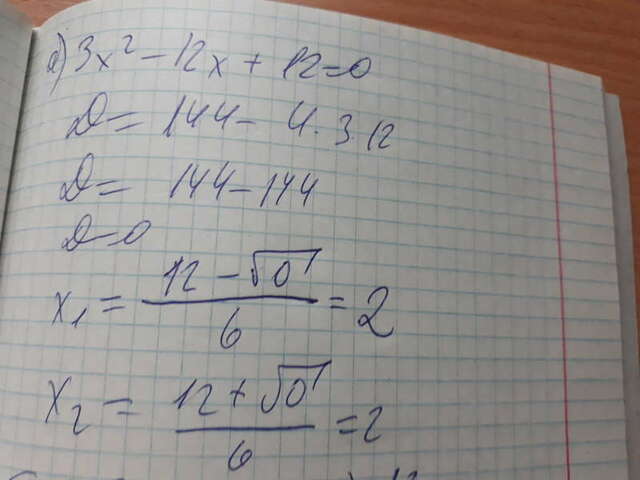 а) 3x² - 12x + 12 = 0
D = 144 - 4 · 3 · 12
D = 144 - 144
D = 0
x₁ = (12 - √0) / 6 = 2
x₂ = (12 + √0) / 6 = 2